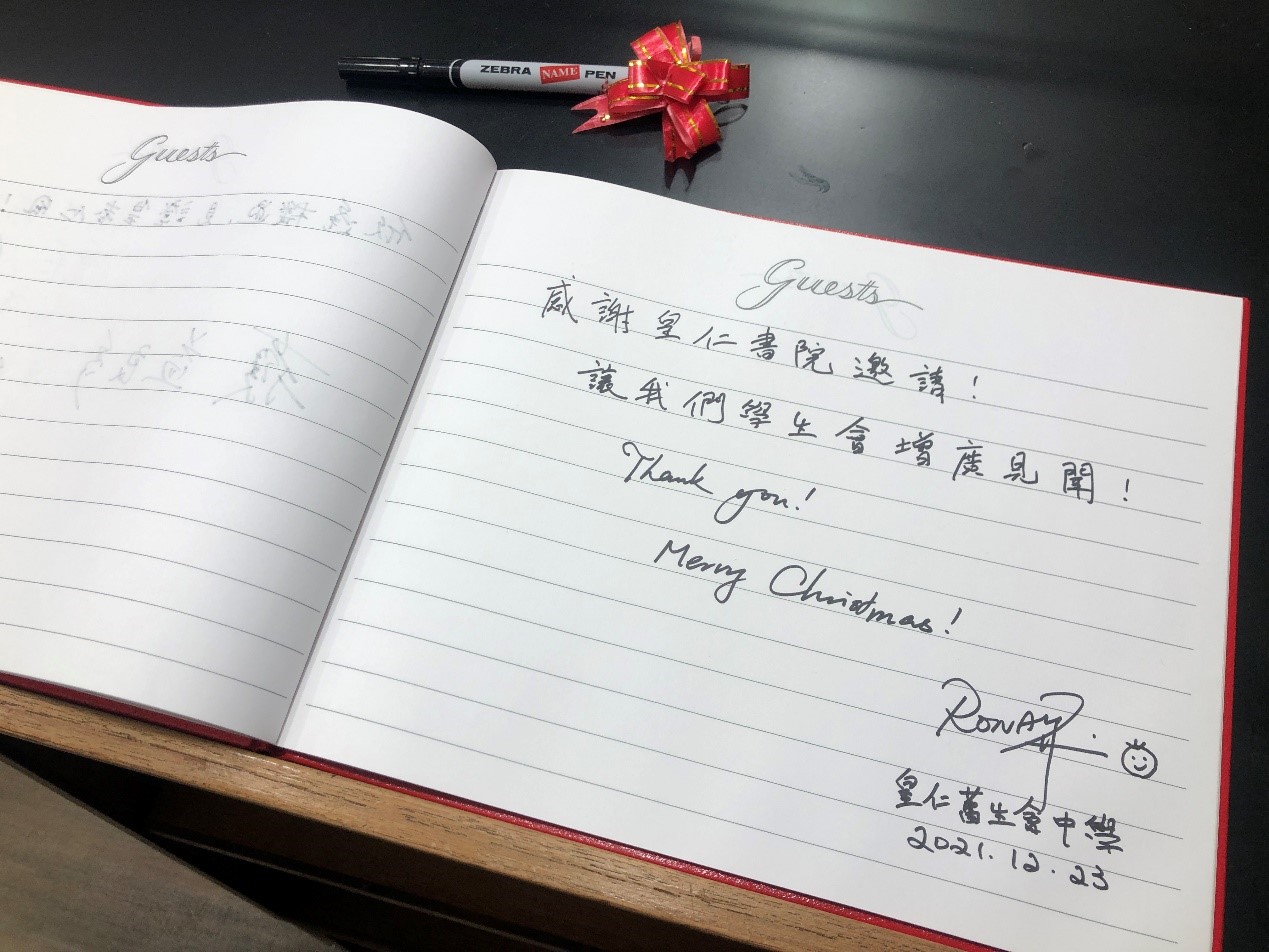 ZEBRA NAME PEN
Guests
Guests
感謝皇仁書院邀請！
讓我們學生會增廣見聞！
Thank you!
Merry Christmas!
皇仁舊生會中學
2021.12.23